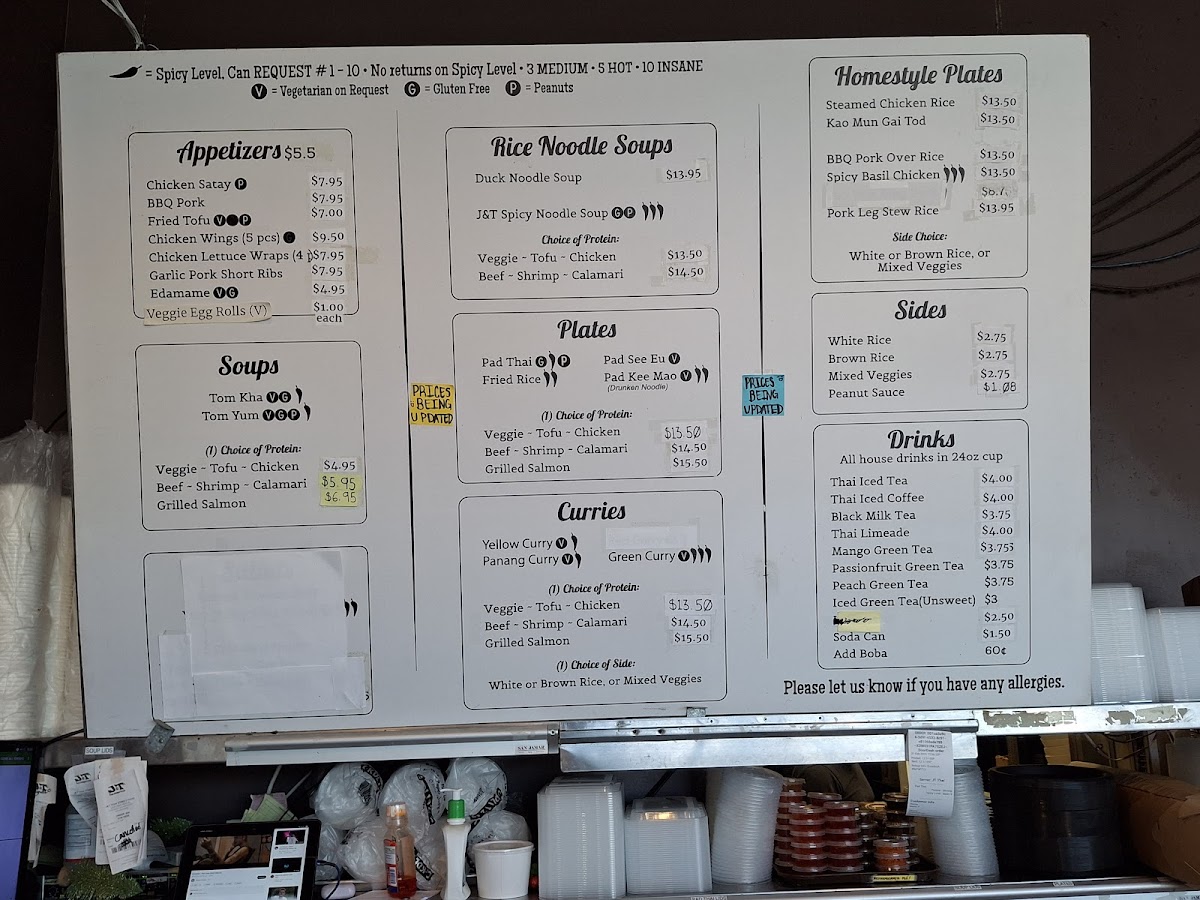 = Spicy Level, Can REQUEST # 1 - 10 • No returns on Spicy Level • 3 MEDIUM • 5 HOT • 10 INSANE
V = Vegetarian on Request G = Gluten Free P = Peanuts
Appetizers $5.5
Chicken Satay P $7.95
BBQ Pork $7.95
Fried Tofu V P $7.00
Chicken Wings (5 pcs) $9.50
Chicken Lettuce Wraps (4 $7.95
Garlic Pork Short Ribs $7.95
Edamame V G $4.95
Veggie Egg Rolls (V) $1.00
each
Soups
Tom Kha V G
Tom Yum V G P
(1) Choice of Protein:
Veggie - Tofu - Chicken $4.95
Beef - Shrimp - Calamari $5.95
Grilled Salmon $6.95
PRICES
BEING
UPDATED
Rice Noodle Soups
Duck Noodle Soup $13.95
J&T Spicy Noodle Soup G P
Choice of Protein:
Veggie - Tofu - Chicken $13.50
Beef - Shrimp - Calamari $14.50
Plates
Pad Thai G P Pad See Eu V
Fried Rice Pad Kee Mao V
(Drunken Noodle)
(1) Choice of Protein:
Veggie - Tofu - Chicken $13.50
Beef - Shrimp - Calamari $14.50
Grilled Salmon $15.50
Curries
Yellow Curry V
Panang Curry V Green Curry V
(1) Choice of Protein:
Veggie - Tofu - Chicken $13.50
Beef - Shrimp - Calamari $14.50
Grilled Salmon $15.50
(1) Choice of Side:
White or Brown Rice, or Mixed Veggies
PRICES
BEING
UPDATED
Homestyle Plates
Steamed Chicken Rice $13.50
Kao Mun Gai Tod $13.50
BBQ Pork Over Rice $13.50
Spicy Basil Chicken $13.50
Pork Leg Stew Rice $13.95
Side Choice:
White or Brown Rice, or
Mixed Veggies
Sides
White Rice $2.75
Brown Rice $2.75
Mixed Veggies $2.75
Peanut Sauce $1.08
Drinks
All house drinks in 24oz cup
Thai Iced Tea $4.00
Thai Iced Coffee $4.00
Black Milk Tea $3.75
Thai Limeade $4.00
Mango Green Tea $3.75
Passionfruit Green Tea $3.75
Peach Green Tea $3.75
Iced Green Tea(Unsweet) $3
$2.50
Soda Can $1.50
Add Boba 60¢
Please let us know if you have any allergies.
SAN JAMAR
SOUP LIDS
J&T